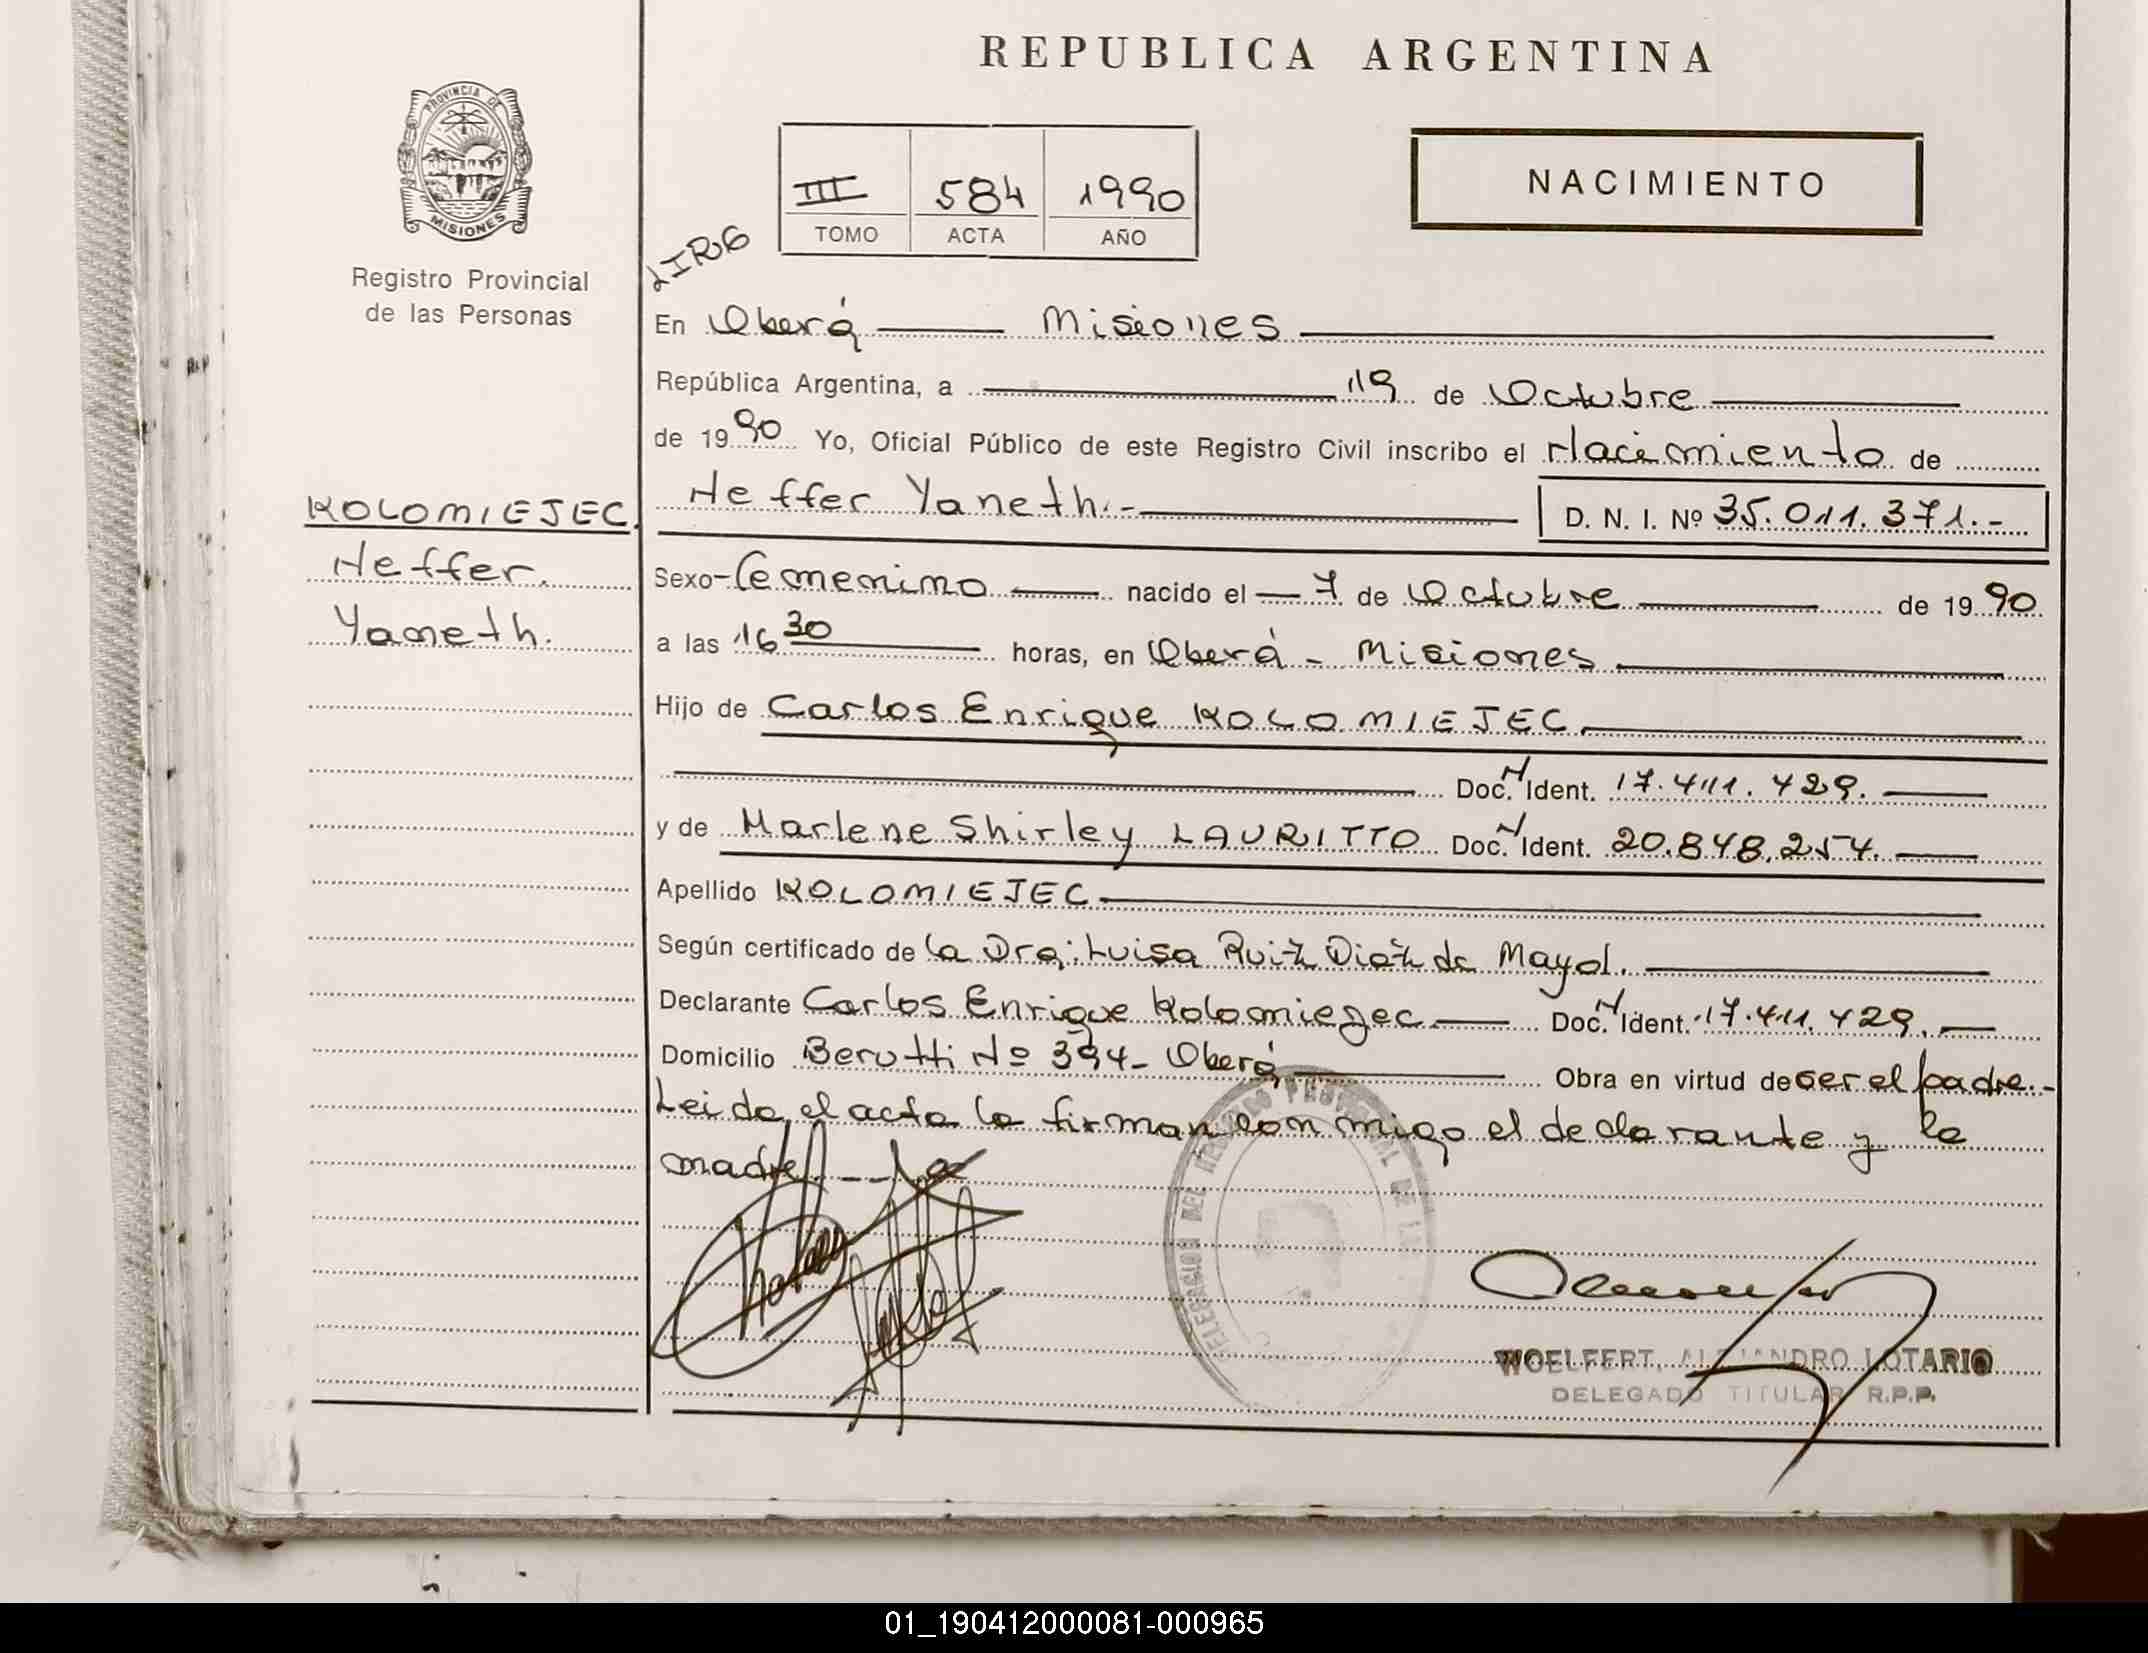 REPUBLICA ARGENTINA
PROVINCIA DE
MISIONES
Registro Provincial
de las Personas
III 584 1990
TOMO ACTA AÑO
NACIMIENTO
En Oberá Misiones
República Argentina, a 19 de Octubre
de 1990 Yo, Oficial Público de este Registro Civil inscribo el Nacimiento de
Neffer Yaneth.-
D. N. I. Nº 35.011.371.-
KOLOMIEJEC.
Neffer.
Yaneth.
Sexo-Femenino nacido el 7 de Octubre de 1990
a las 16 30 horas, en Oberá - Misiones
Hijo de Carlos Enrique KOLOMIEJEC.
Doc. N Ident. 17.411.429.
y de Marlene Shirley LAURITTO Doc. N Ident. 20.848.254.
Apellido KOLOMIEJEC
Según certificado de la Dra: Luisa Ruiz Diaz de Mayol.
Declarante Carlos Enrique Kolomiejec Doc. N Ident. 17.411.429.
Domicilio Berutti Nº 394- Oberá Obra en virtud de ser el padre.-
Leida el acta la firman con migo el declarante y la
madre
DELEGACION DEL REGISTRO PROVINCIAL DE LAS
WOELFERT, ALEJANDRO LOTARIO
DELEGADO TITULAR R.P.P.
01_190412000081-000965